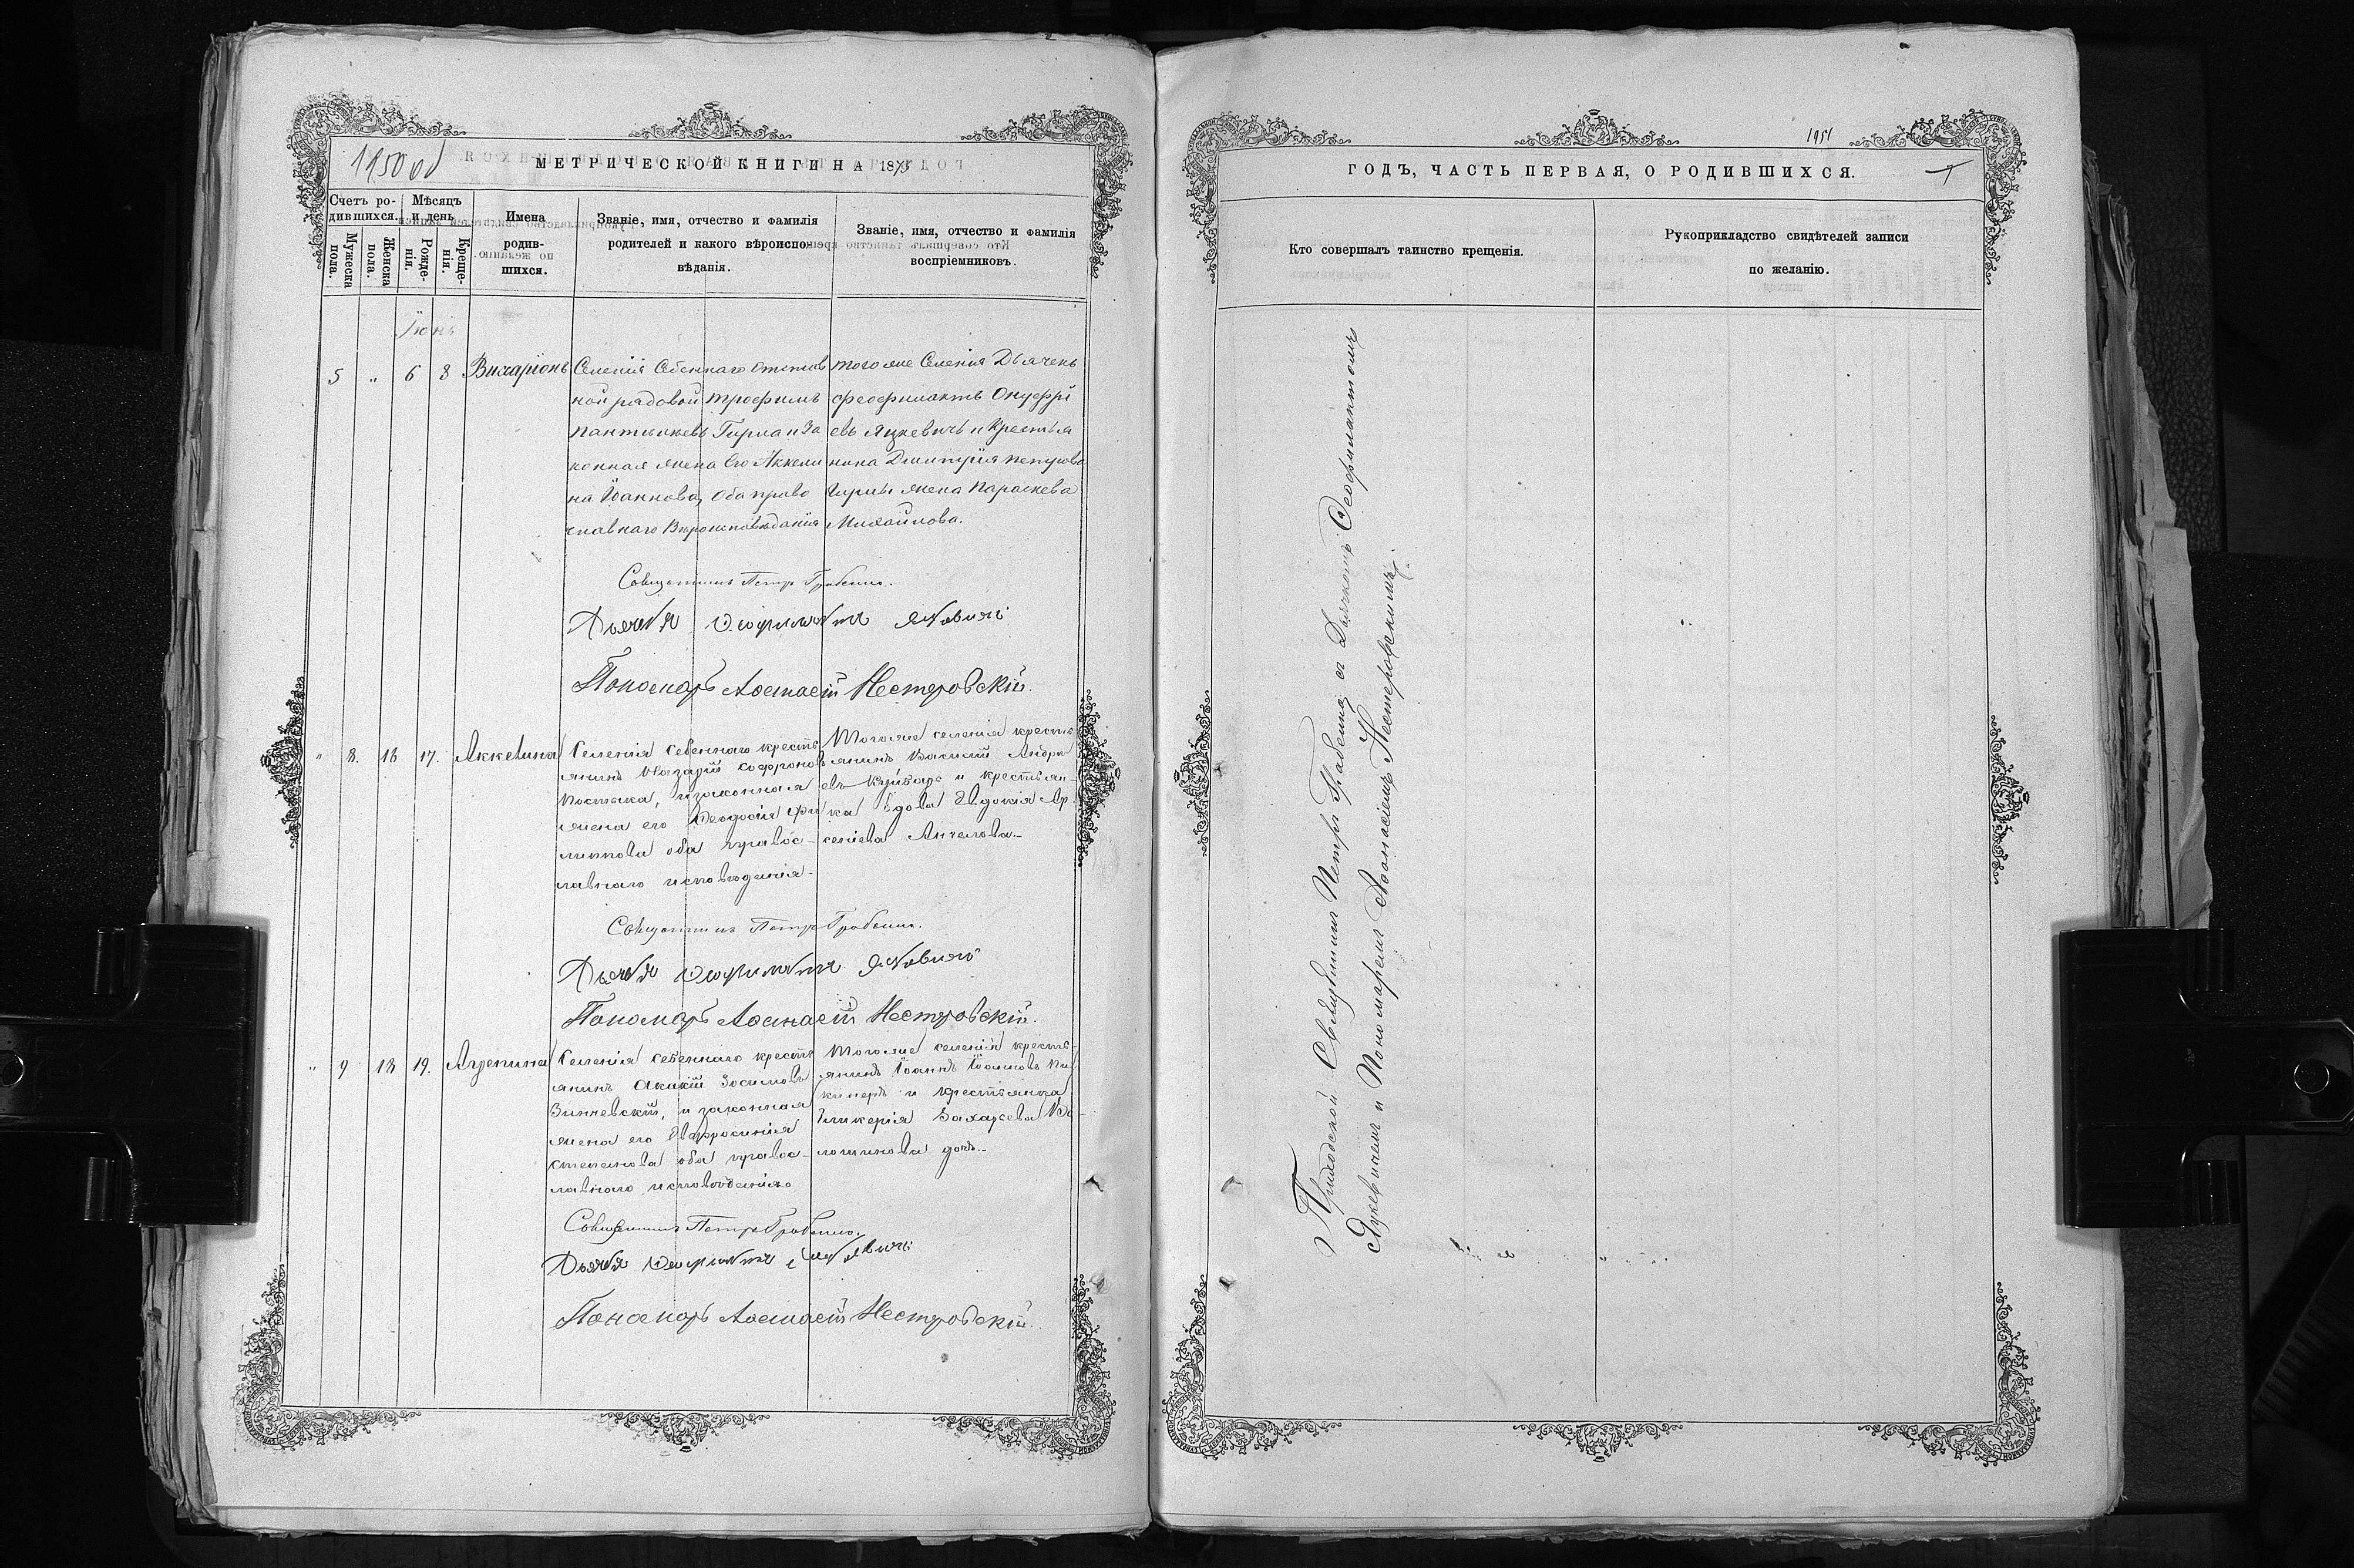 1950 об
МЕТРИЧЕСКОЙ КНИГИ НА 1875
Счетъ ро-
дившихся.
Мѣсяцъ
и день
Мужеска
пола.
Женска
пола.
Рожде-
нія.
Креще-
нія.
Имена
родив-
шихся.
Званіе, имя, отчество и фамилія
родителей и какого вѣроиспо
вѣданія.
Званіе, имя, отчество и фамилія
воспріемниковъ.
Іюнь
5 „ 6 8 Виссаріонъ
Селенія Себеннаго Отстав
ной рядовой Трофимъ
Пантиліевъ и За
конная жена Его Аккели
на Іоаннова, Оба право
славнаго Вѣроисповѣданія
того же Селенія Дьячекъ
Ѳеофилактъ Онуфрі
евъ Яцкевичъ и Крестья
нина Димитрія Петрова
жена Параскева
Михайлова.
Священникъ Петръ Грабенко.
Дьячекъ Ѳеофилактъ
Пономарь Аѳанасій Нестеровскій.
„ 8. 16 17. Аккелина
Селенія Себеннаго кресть
янинъ Назарій Софроновъ
и законная
жена его Ѳеодосія Фи
липпова оба правос-
лавнаго исповѣданія-
Того же селенія кресть
янинъ Василій Андре
евъ и крестьян-
ка вдова Евдокія Ар
сеніева
Священникъ Петръ Грабенко.
Дьячекъ Ѳеофилактъ
Пономарь Аѳанасій Нестеровскій.
„ 9 18 19. Агрепина
Селенія Себеннаго кресть
янинъ Акакій Зосимовъ
и законная
жена его Евфросинія
Степанова оба правос-
лавнаго исповѣданія
Того же селенія кресть-
янинъ Іоаннъ Іоанновъ
и крестьянка
Гликерія Захарьева
дочь.-
Священникъ Петръ Грабенко.
Дьячекъ Ѳеофилактъ
Пономарь Аѳанасій Нестеровскій.
1951
ГОДЪ, ЧАСТЬ ПЕРВАЯ, О РОДИВШИХСЯ.
Кто совершалъ таинство крещенія.
Рукоприкладство свидѣтелей записи
по желанію.
Приходской Священникъ Петръ Грабенко съ Дьячкомъ Ѳеофилактомъ
Яцкевичемъ и Пономаремъ Аѳанасіемъ Нестеровскимъ.